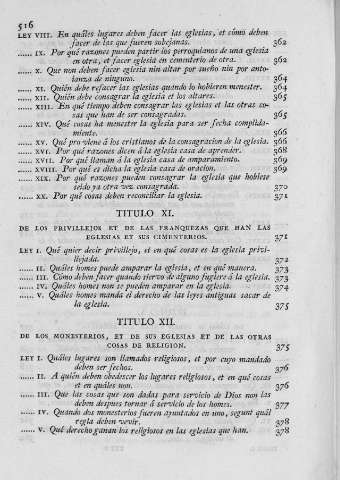 516
LEY VIII. En quáles lugares deben facer las eglesias, et cómo deben
facer de las que fueren sobejanas. 362
...... IX. Por qué razones pueden partir los perroquianos de una eglesia
en otra, et facer eglesia en cementerio de otra. 362
...... X. Que non deben facer eglesia nin altar por sueño nin por anto-
janza de ninguno. 364
...... XI. Quién debe refacer las eglesias quando lo hobieren menester. 364
...... XII. Quién debe consagrar la eglesia et los altares. 365
...... XIII. En qué tiempo deben consagrar las eglesias et las otras co-
sas que han de ser consagradas. 365
...... XIV. Qué cosas ha menester la eglesia para ser fecha complida-
miente. 366
...... XV. Qué pro viene á los cristianos de la consagracion de la eglesia. 366
...... XVI. Por qué razones dicen á la eglesia casa de aprender. 368
...... XVII. Por qué llaman á la eglesia casa de amparamiento. 369
...... XVIII. Por qué es dicha la eglesia casa de oracion. 369
...... XIX. Por qué razones pueden consagrar la eglesia que hobiese
seido ya otra vez consagrada. 370
...... XX. Por qué cosas deben reconciliar la eglesia. 371
TITULO XI.
DE LOS PRIVILLEJOS ET DE LAS FRANQUEZAS QUE HAN LAS
EGLESIAS ET SUS CIMENTERIOS. 371
LEY I. Qué quier decir privillejo, et en qué cosas es la eglesia privi-
llejada. 372
...... II. Quáles homes puede amparar la eglesia, et en qué manera. 373
...... III. Cómo deben facer quando siervo de alguno fugiere á la eglesia. 373
...... IV. Quáles homes non se pueden amparar en la eglesia. 374
...... V. Quáles homes manda el derecho de las leyes antiguas sacar de
la eglesia. 375
TITULO XII.
DE LOS MONESTERIOS, ET DE SUS EGLESIAS ET DE LAS OTRAS
COSAS DE RELIGION. 375
LEY I. Quáles lugares son llamados religiosos, et por cuyo mandado
deben ser fechos. 376
...... II. A quién deben obedescer los lugares religiosos, et en qué cosas
et en quáles non. 376
...... III. Que las cosas que son dadas para servicio de Dios non las
deben despues tornar á servicio de los homes. 377
...... IV. Quando dos monesterios fueren ayuntados en uno, segunt quál
regla deben vevir. 378
...... V. Qué derecho ganan los religiosos en las eglesias que han. 378